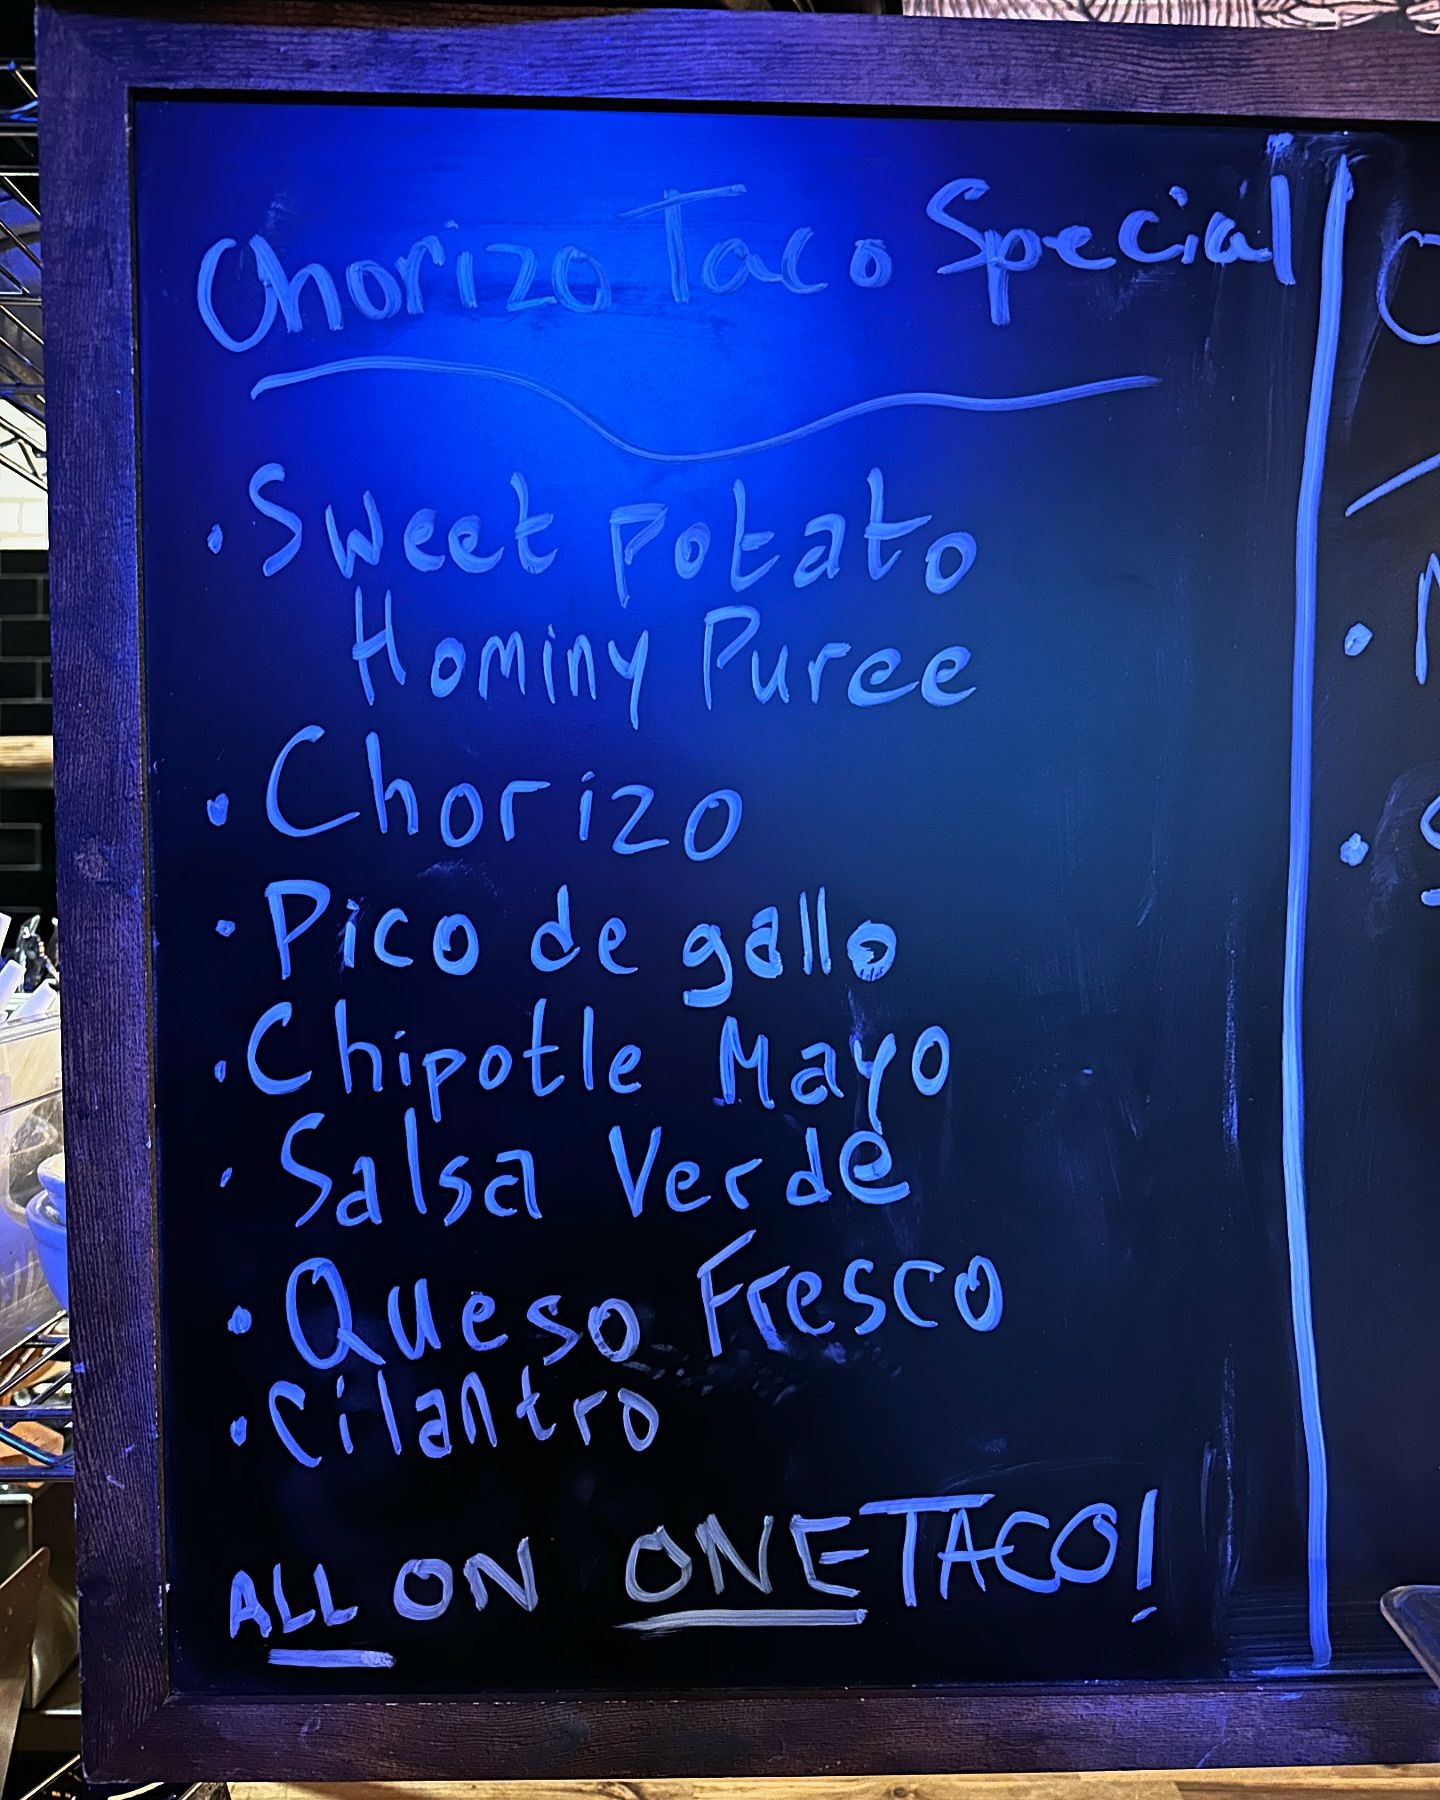 Chorizo Taco Special
• Sweet Potato
Hominy Puree
• Chorizo
• Pico de gallo
• Chipotle Mayo
• Salsa Verde
• Queso Fresco
• Cilantro
ALL ON ONE TACO!